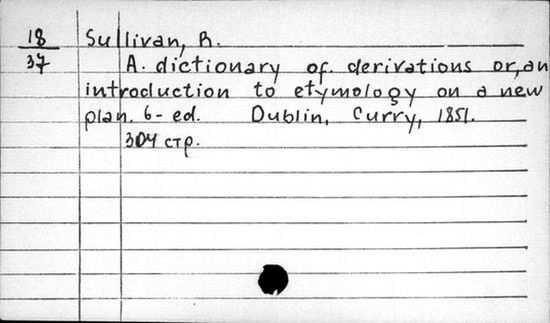 18 Sullivan, R.
37 A. dictionary of. derivations or, an
introduction to etymology on a new
plan. 6- ed. Dublin, Curry, 1851.
304 стр.